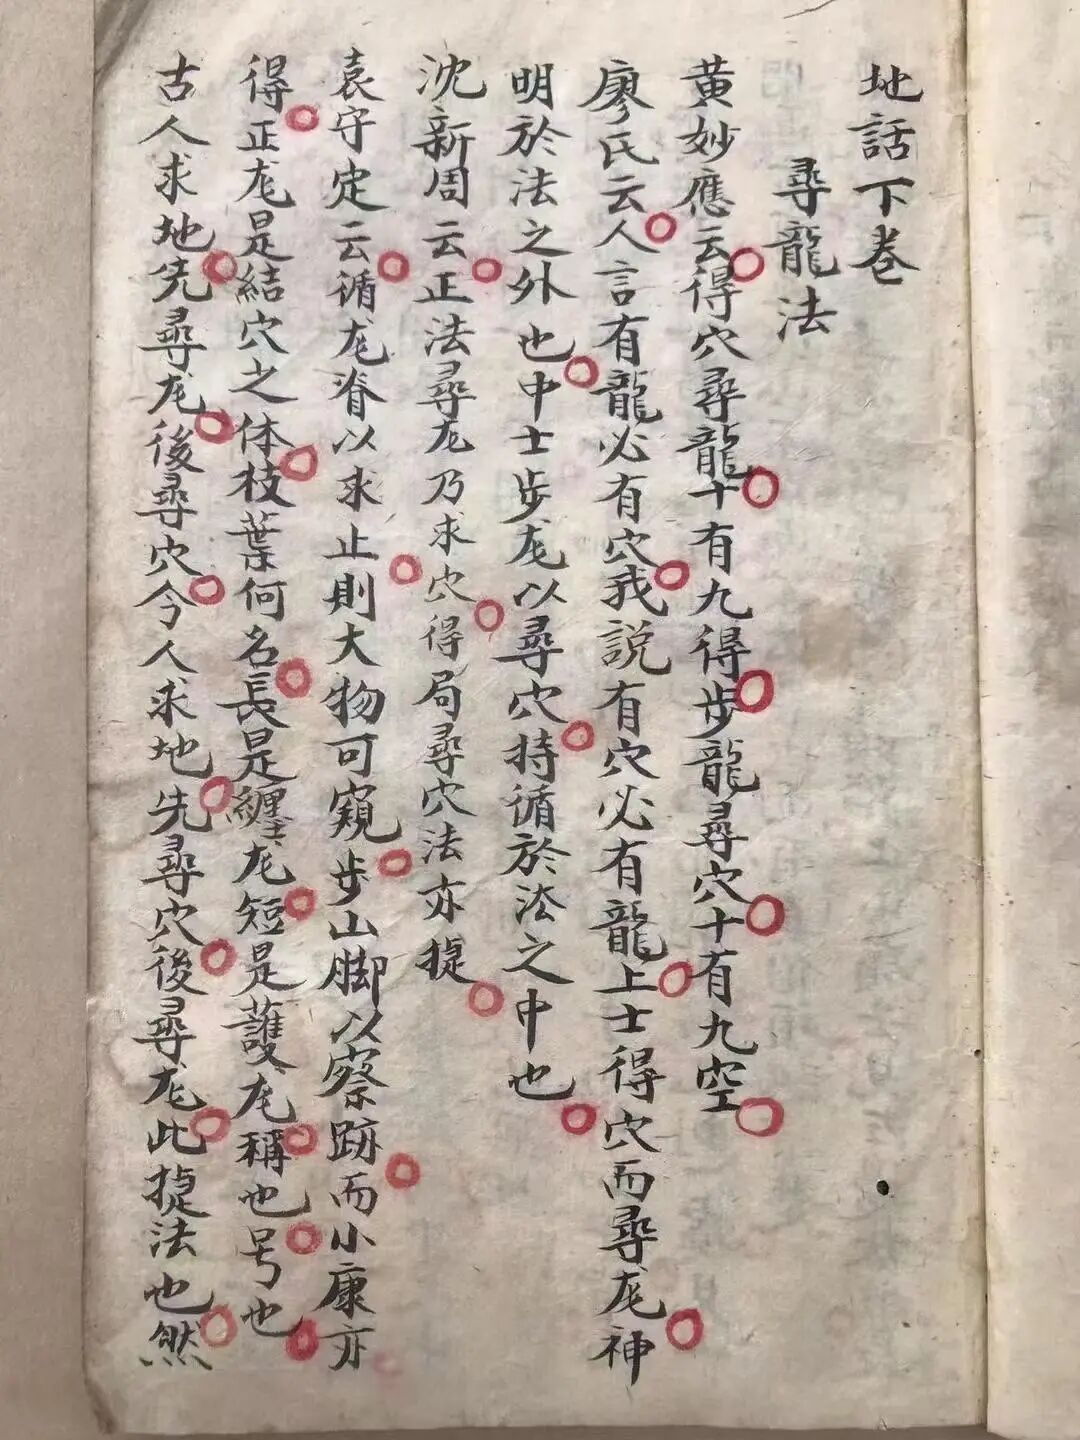 地話下卷
尋龍法
黃妙應云得穴尋龍十有九得步龍尋穴十有九空
廖氏云人言有龍必有穴我説有穴必有龍上士得穴而尋龙神
明於法之外也中士步龙以尋穴持循於法之中也
沈新周云正法尋龙乃求穴得局尋穴法亦㨗
袁守定云循龙脊以求止則大物可窺步山脚以察跡而小康亦
得正龙是結穴之体枝葉何名長是纏龙短是護龙稱也号也
古人求地先尋龙後尋穴今人求地先尋穴後尋龙此㨗法也然